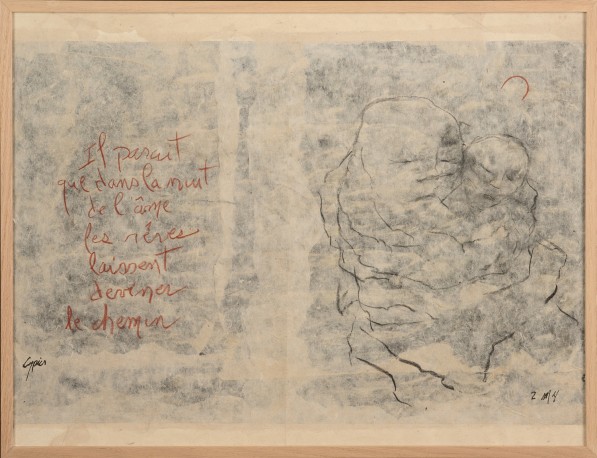 Il paraît
que dans la nuit
de l'âme
les rêves
laissent
deviner
le chemin